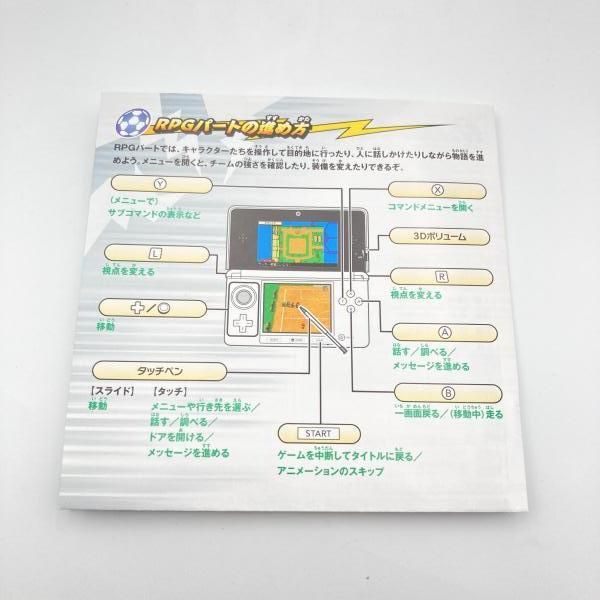 RPGパートの進め方
RPGパートでは、キャラクターたちを操作して目的地に行ったり、人に話しかけたりしながら物語を進
めよう。メニューを開くと、チームの強さを確認したり、装備を変えたりできるぞ。
Y
(メニューで)
サブコマンドの表示など
X
コマンドメニューを開く
3Dボリューム
L
視点を変える
R
視点を変える
移動
A
話す/調べる/
メッセージを進める
タッチペン
【スライド】 【タッチ】
移動
メニューや行き先を選ぶ/
話す/調べる/
ドアを開ける/
メッセージを進める
B
一画面戻る/(移動中)走る
START
ゲームを中断してタイトルに戻る/
アニメーションのスキップ